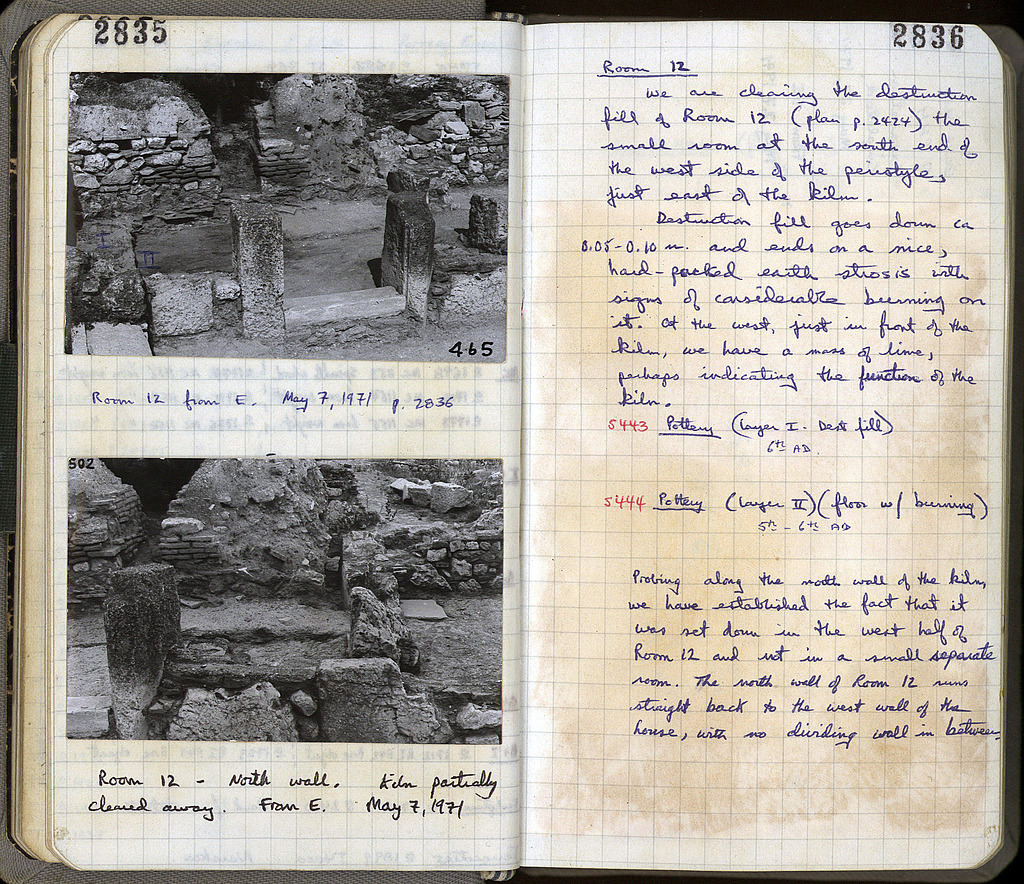 2835
465
Room 12 from E. May 7, 1971 p. 2836
502
Room 12 - North wall. Kiln partially
cleared away. From E. May 7, 1971
2836
Room 12
We are clearing the destruction
fill of Room 12 (plan p. 2424) the
small room at the south end of
the west side of the peristyle,
just east of the kiln.
Destruction fill goes down ca
0.05-0.10 m. and ends on a nice,
hard-packed earth strosis with
signs of considerable burning on
it. At the west, just in front of the
kiln, we have a mass of lime,
perhaps indicating the function of the
kiln.
5443 Pottery (Layer I. Dest fill)
6th AD.
5444 Pottery (Layer II) (floor w/ burning)
5th - 6th AD
Probing along the north wall of the kiln,
we have established the fact that it
was set down in the west half of
Room 12 and not in a small separate
room. The north wall of Room 12 runs
straight back to the west wall of the
house, with no dividing wall in between.